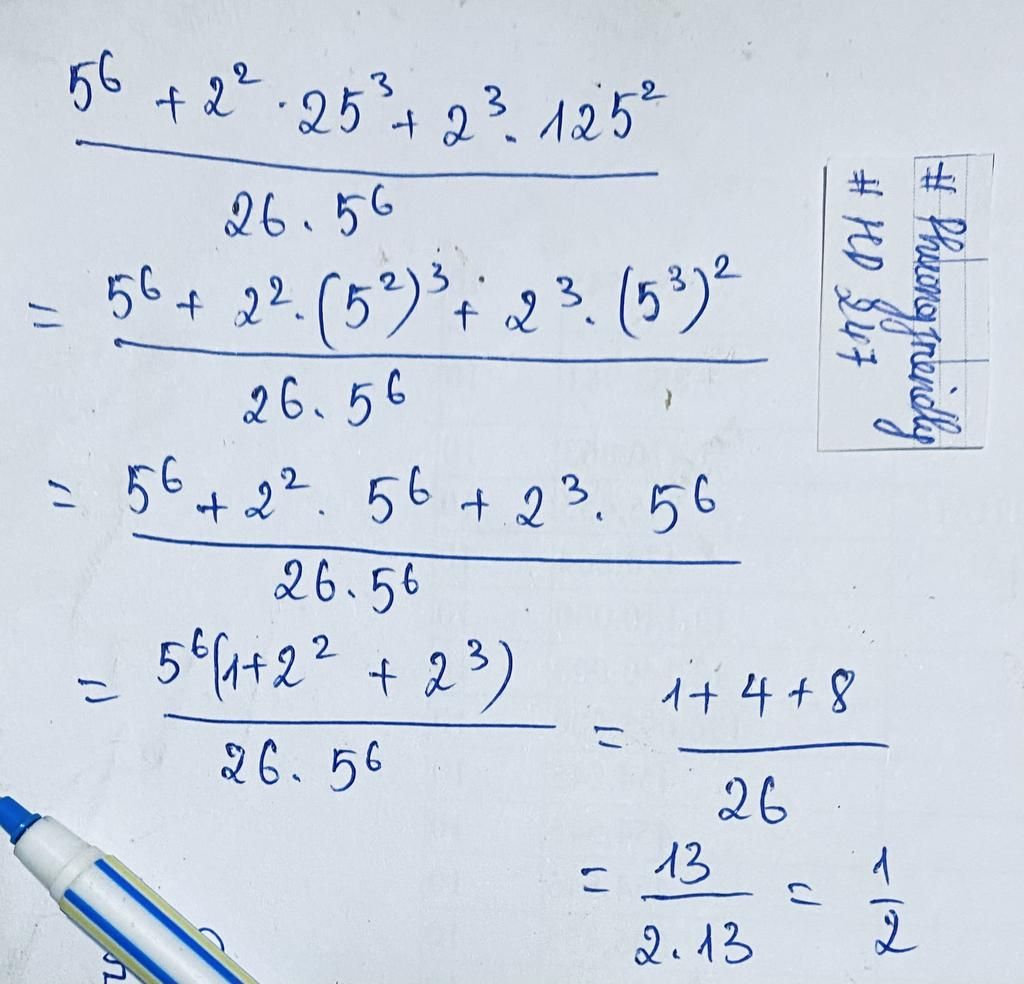 5⁶ + 2² · 25³ + 2³ . 125²
26 . 5⁶
= 5⁶ + 2² . (5²)³ + 2³ . (5³)²
26 . 5⁶
= 5⁶ + 2² . 5⁶ + 2³ . 5⁶
26 . 5⁶
= 5⁶(1+2² + 2³)
26 . 5⁶
= 1 + 4 + 8
26
= 13
2 . 13
= 1
2
# Phuongfriendly
# HD 247